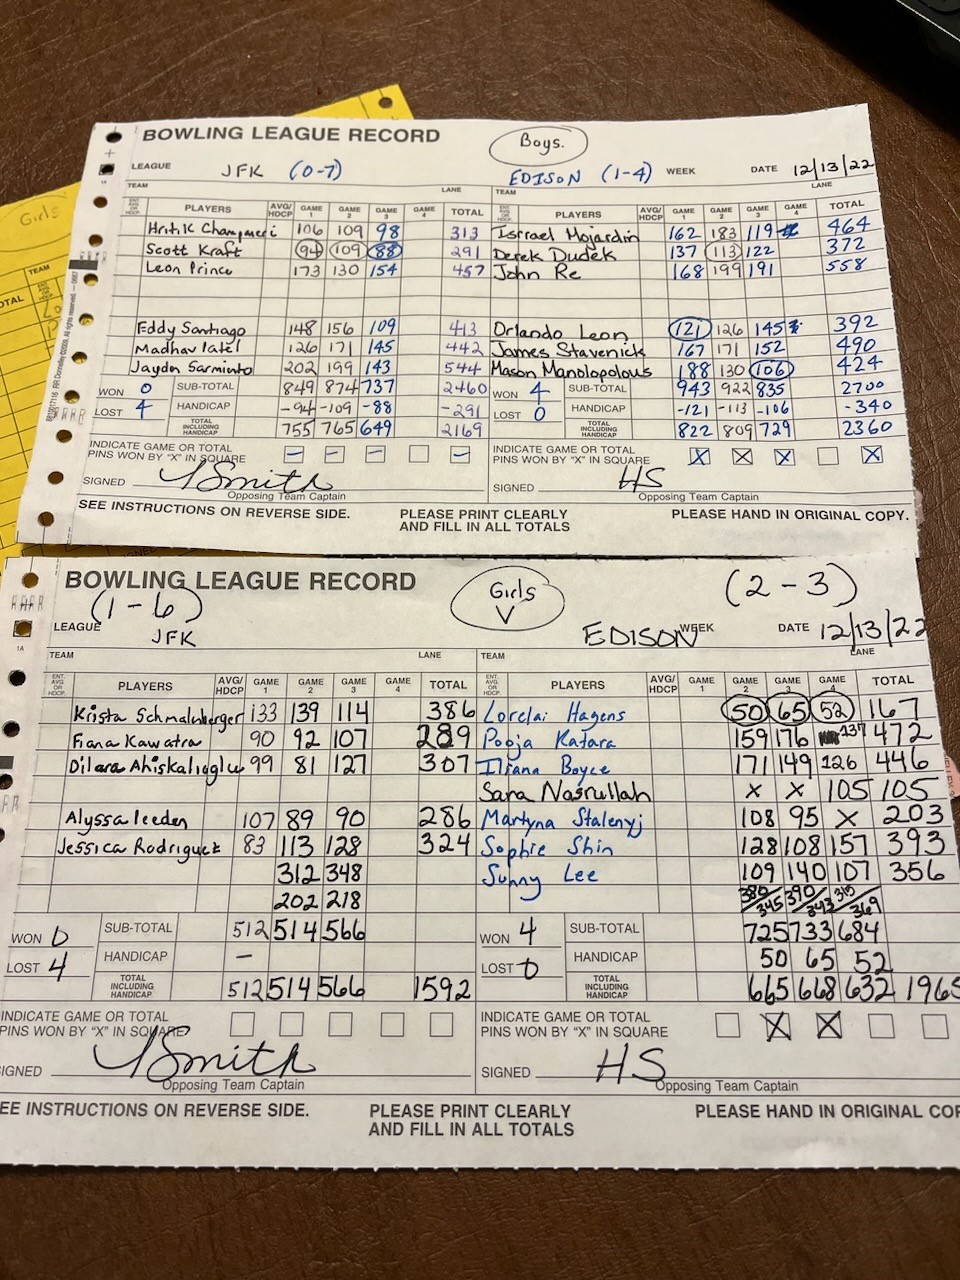 Girls
TEAM
BOWLING LEAGUE RECORD
Boys.
LEAGUE JFK (0-7) EDISON (1-4) WEEK DATE 12/13/22
TEAM LANE TEAM LANE
ENT. AVG. OR HDCP. PLAYERS AVG/HDCP GAME 1 GAME 2 GAME 3 GAME 4 TOTAL ENT. AVG. OR HDCP. PLAYERS AVG/HDCP GAME 1 GAME 2 GAME 3 GAME 4 TOTAL
Hritik 106 109 98 313 Isrrael Mojardin 162 183 119 464
Scott Kraft 94 109 88 291 Derek Dudek 137 113 122 372
Leon Prince 173 130 154 457 John Re 168 199 191 558
Eddy Santiago 148 156 109 413 Orlando Leon 121 126 145 392
Madhav Patel 126 171 145 442 James Stavenick 167 171 152 490
Jaydon Sarmiento 202 199 143 544 Mason Manolopolous 188 130 106 424
WON 0 SUB-TOTAL 849 874 737 2460 WON 4 SUB-TOTAL 943 922 835 2700
LOST 4 HANDICAP -94 -109 -88 -291 LOST 0 HANDICAP -121 -113 -106 -340
TOTAL INCLUDING HANDICAP 755 765 649 2169 TOTAL INCLUDING HANDICAP 822 809 729 2360
INDICATE GAME OR TOTAL PINS WON BY "X" IN SQUARE – – – – INDICATE GAME OR TOTAL PINS WON BY "X" IN SQUARE X X X X
SIGNED JSmith SIGNED HS
Opposing Team Captain Opposing Team Captain
SEE INSTRUCTIONS ON REVERSE SIDE. PLEASE PRINT CLEARLY AND FILL IN ALL TOTALS PLEASE HAND IN ORIGINAL COPY.
BOWLING LEAGUE RECORD
Girls V
(1-6) (2-3)
LEAGUE JFK EDISON WEEK DATE 12/13/22
TEAM LANE TEAM LANE
ENT. AVG. OR HDCP. PLAYERS AVG/HDCP GAME 1 GAME 2 GAME 3 GAME 4 TOTAL ENT. AVG. OR HDCP. PLAYERS AVG/HDCP GAME 1 GAME 2 GAME 3 GAME 4 TOTAL
Krista Schmalnberger 133 139 114 386 Lorelai Hagens 50 65 52 167
Fiana Kawatra 90 92 107 289 Pooja Katara 159 176 137 472
Dilara Ahiskalioglu 99 81 127 307 Iliana Boyce 171 149 126 446
Sara Nasrullah X X 105 105
Alyssa leeden 107 89 90 286 Martyna Stalenyj 108 95 X 203
Jessica Rodriguez 83 113 128 324 Sophie Shin 128 108 157 393
312 348 Sunny Lee 109 140 107 356
202 218 380/345 390/343 315/369
WON 0 SUB-TOTAL 512 514 566 WON 4 SUB-TOTAL 725 733 684
LOST 4 HANDICAP – LOST 0 HANDICAP 50 65 52
TOTAL INCLUDING HANDICAP 512 514 566 1592 TOTAL INCLUDING HANDICAP 665 668 632 1965
INDICATE GAME OR TOTAL PINS WON BY "X" IN SQUARE INDICATE GAME OR TOTAL PINS WON BY "X" IN SQUARE X X
SIGNED JSmith SIGNED HS
Opposing Team Captain Opposing Team Captain
EE INSTRUCTIONS ON REVERSE SIDE. PLEASE PRINT CLEARLY AND FILL IN ALL TOTALS PLEASE HAND IN ORIGINAL COP